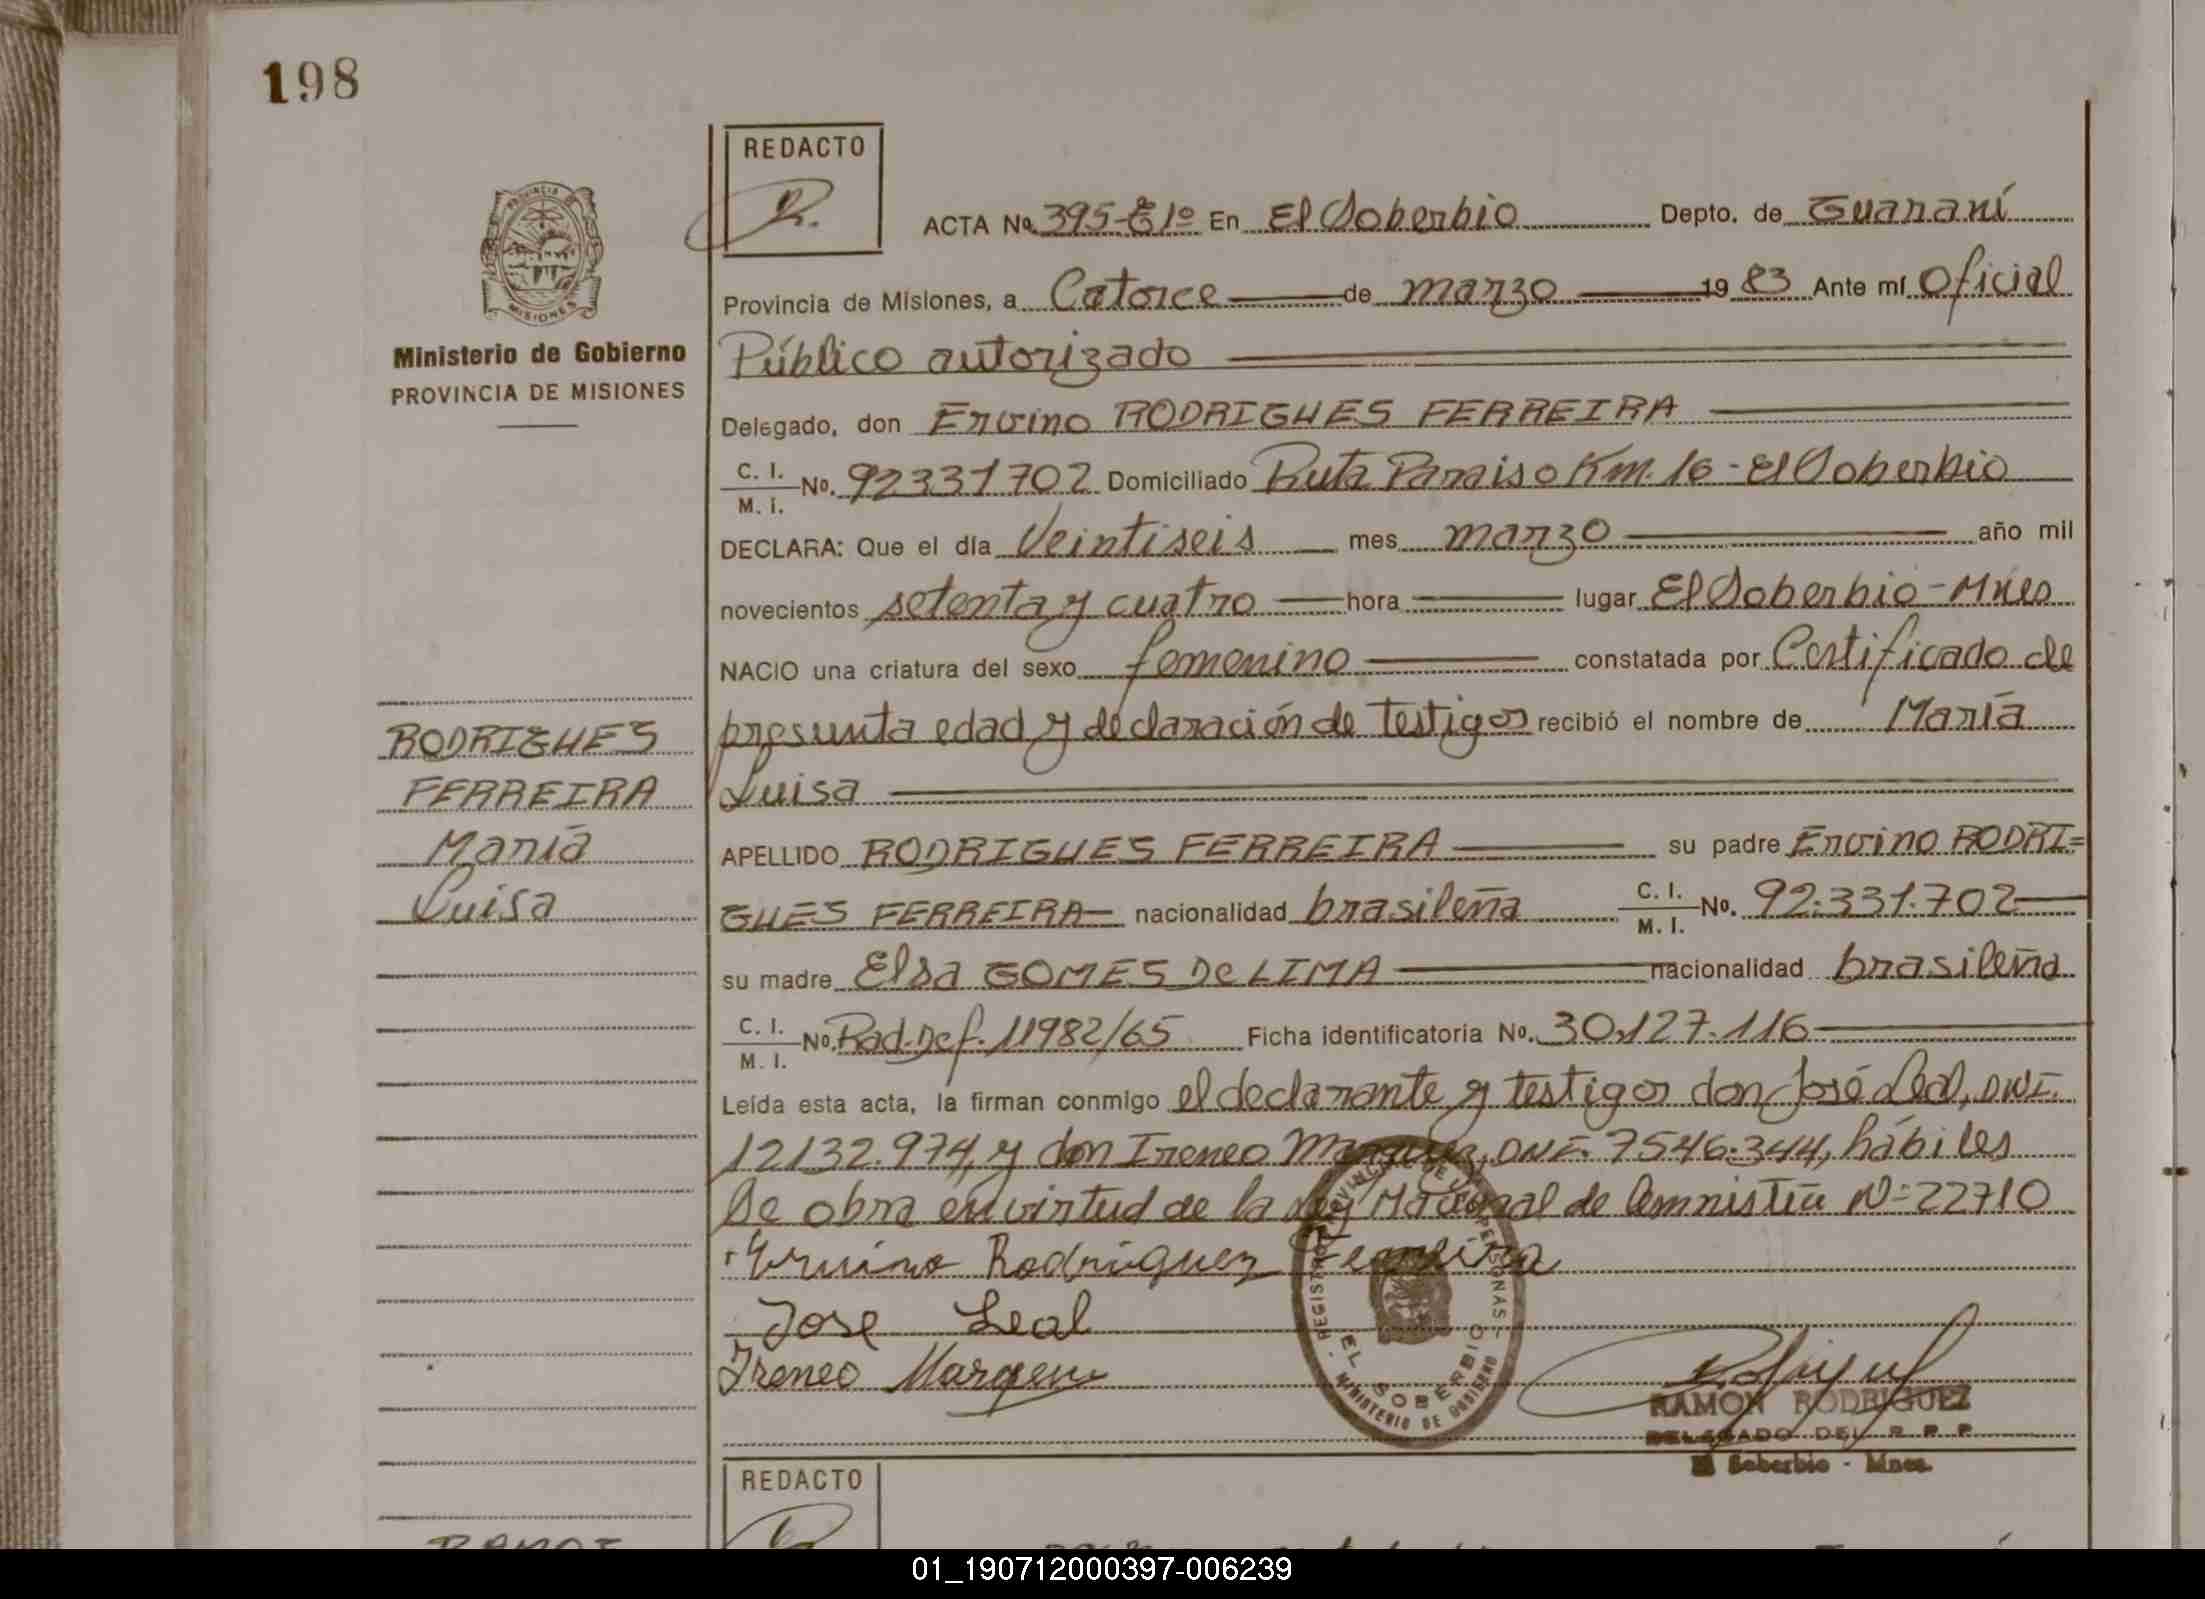 198
REDACTO
R.
PROVINCIA DE
MISIONES
Ministerio de Gobierno
PROVINCIA DE MISIONES
ACTA Nº 395-E 1º En El Soberbio Depto. de Guaraní
Provincia de Misiones, a Catorce de marzo 19 83 Ante mí Oficial
Público autorizado
Delegado, don Ervino RODRIGUES FERREIRA
C. I.
M. I. Nº. 92331702 Domiciliado Ruta Paraiso Km. 16 - El Soberbio
DECLARA: Que el día Veintiseis mes marzo año mil
novecientos setenta y cuatro hora lugar El Soberbio - Mnes
NACIO una criatura del sexo femenino constatada por Certificado de
presunta edad y declaración de testigos recibió el nombre de María
Luisa
APELLIDO RODRIGUES FERREIRA su padre Ervino RODRI=
GUES FERREIRA nacionalidad brasileña C. I.
M. I. Nº. 92.331.702
su madre Elsa GOMES De LIMA nacionalidad brasileña
C. I.
M. I. Nº. Rad. Def. 11982/65 Ficha identificatoria Nº. 30.127.116
Leída esta acta, la firman conmigo el declarante y testigos don José Leal, DNI.
12132.974, y don Ireneo DNI. 7546.344, hábiles
Se obra en virtud de la Ley Nacional de Amnistía Nº 22710
Ervino Rodriguez Ferreira
Jose Leal
Ireneo
RODRIGUES
FERREIRA
María
Luisa
REGISTRO PROVINCIAL DE PERSONAS
EL SOBERBIO
MINISTERIO DE GOBIERNO
RAMON RODRIGUEZ
DELEGADO DEL R. P. P.
El Soberbio - Mnes.
REDACTO
01_190712000397-006239